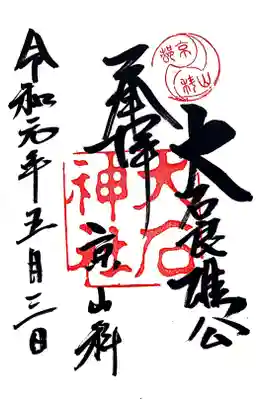 大石良雄公
奉拝
京山科
大石神社
令和元年五月三日